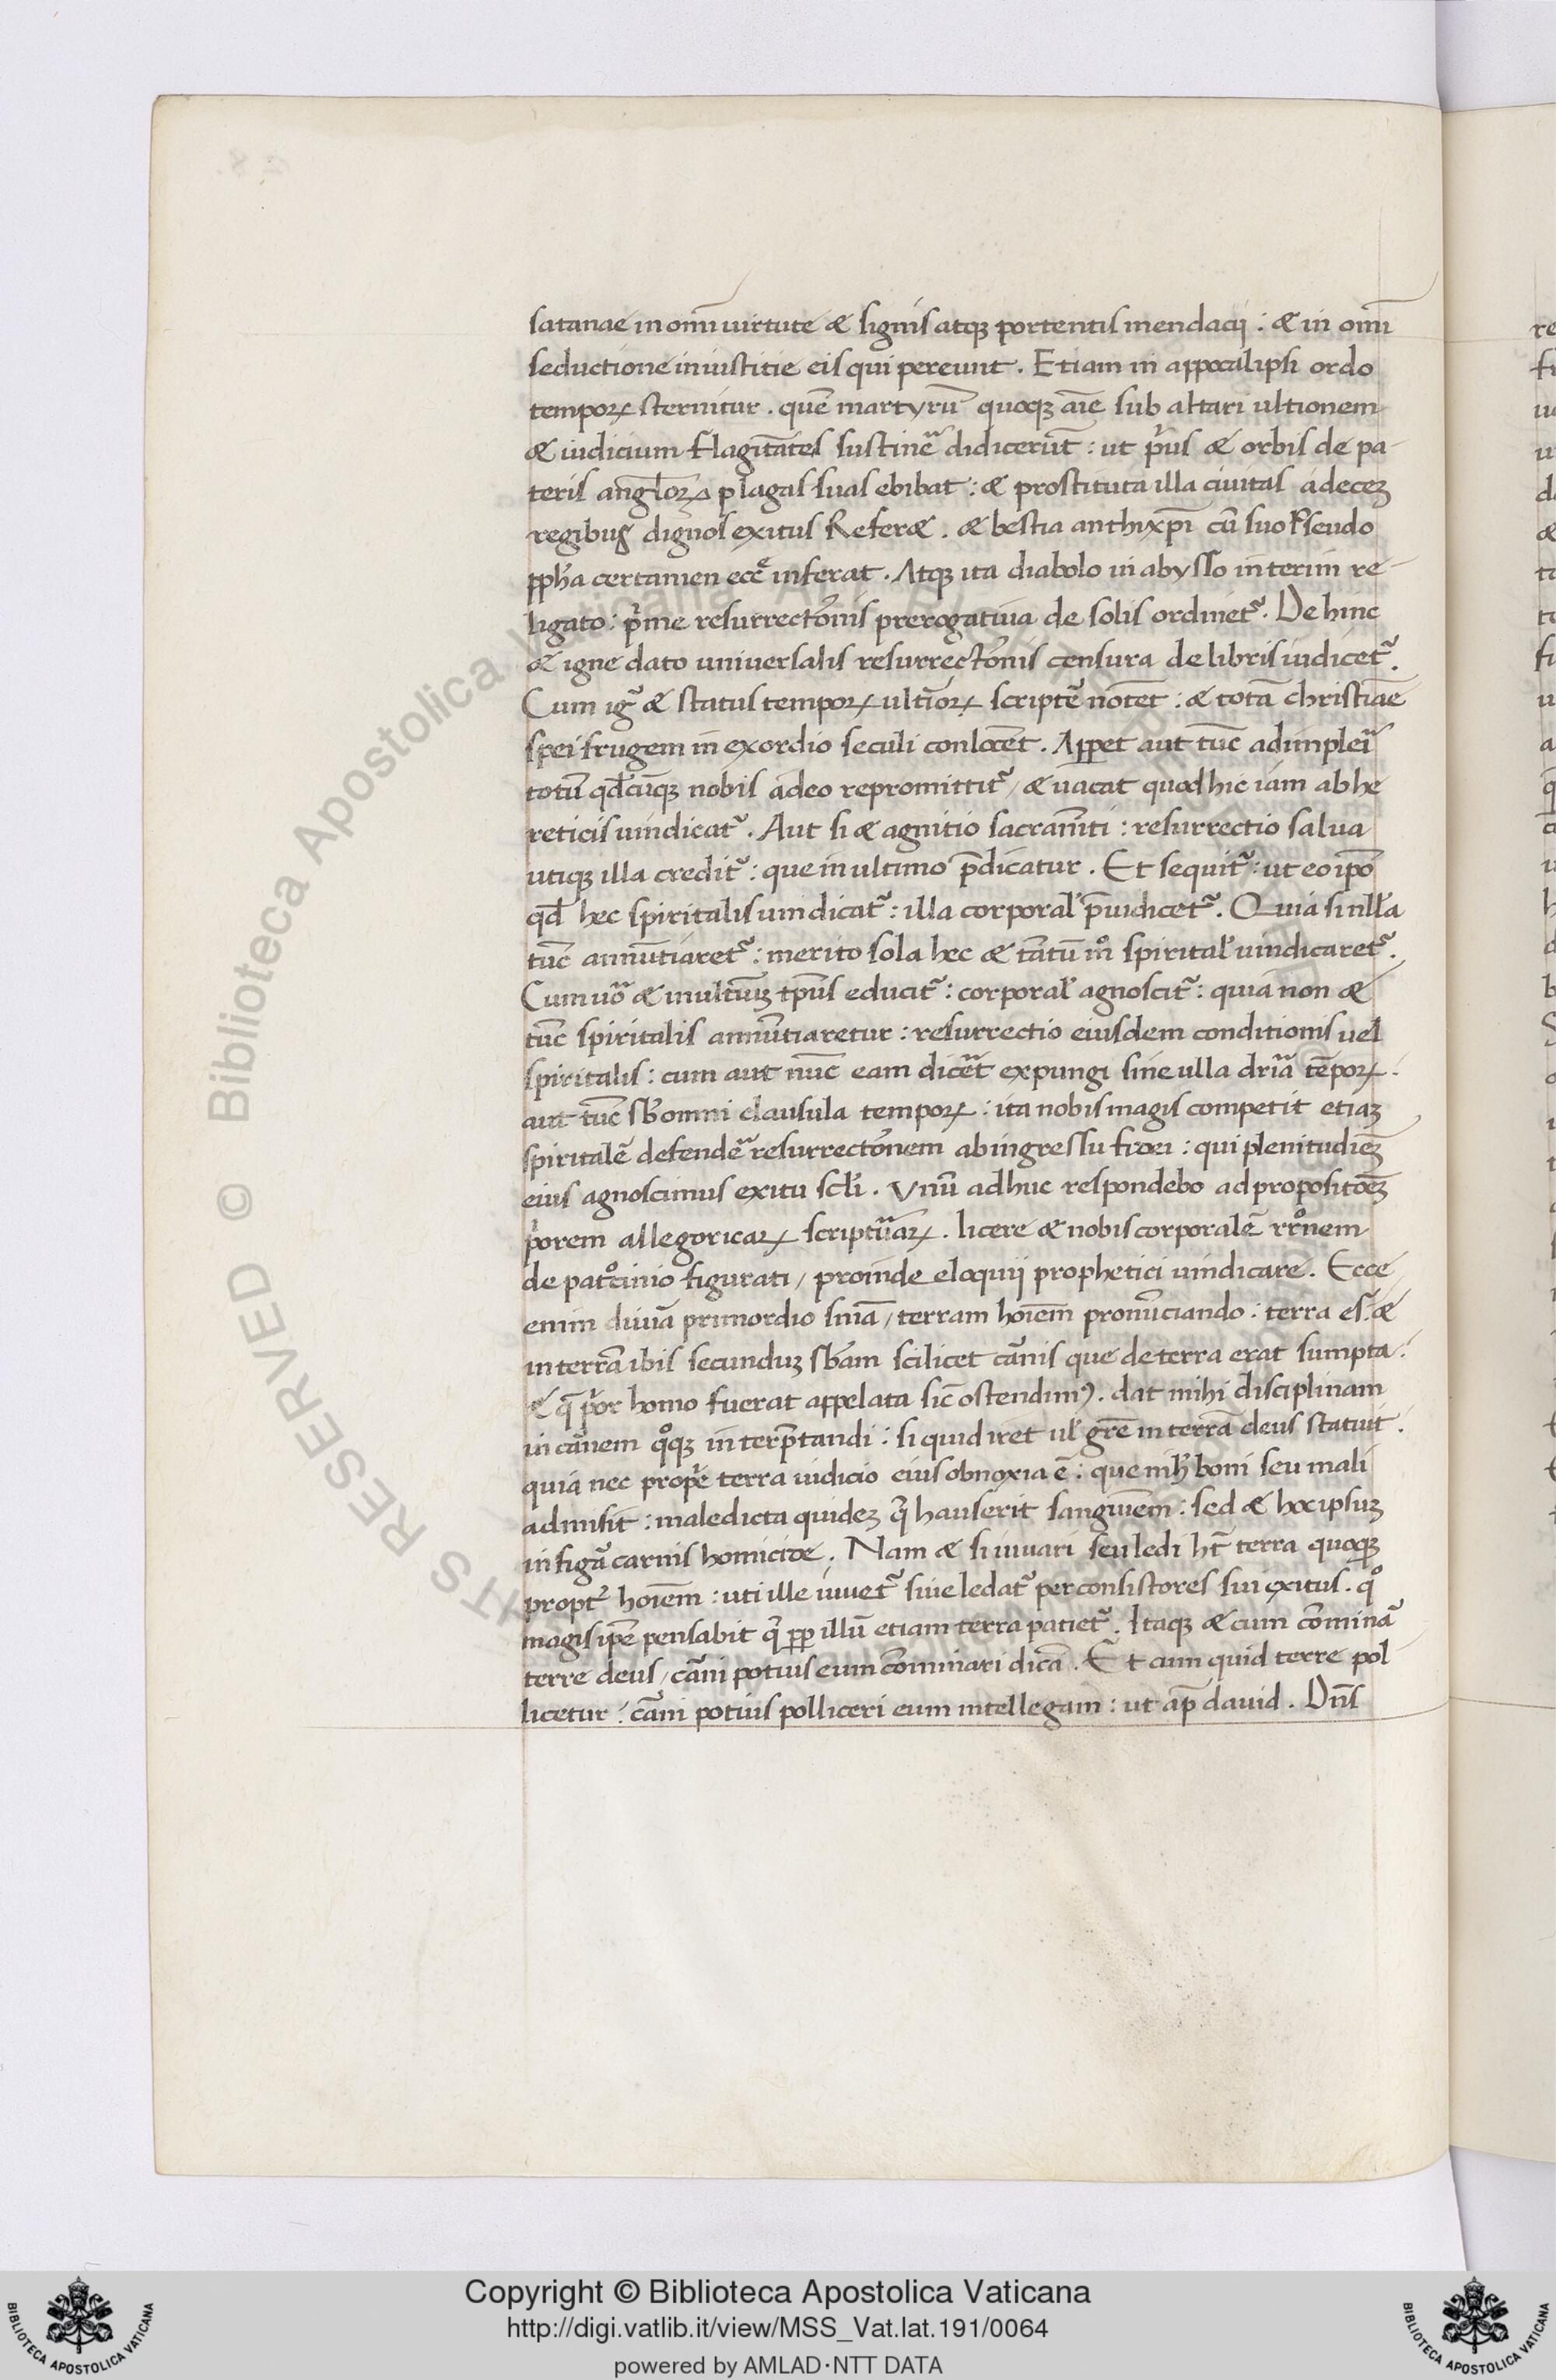 satanae in om̄i uirtute & signis atq; portentis mendacij : & in om̄i
seductione iniustitie eis qui pereunt . Etiam in appocalipsi ordo
tempoꝝ sternitur . quē martyrū quoq; aīe sub altari ultionem
& iudicium flagitātes sustinē didicerūt : ut p̓us & orbis de pa-
teris angloꝝ plagas suas ebibat : & prostituta illa ciuitas a decez
regibus dignos exitus Refer& . & bestia anthixp̄i cū suo Pseudo
ꝓpha certamen ecc̄e inferat . Atq; ita diabolo in abysso interim re-
ligato : p̓me resurrectōnis prerogatiua de solis ordinet᷑ . De hinc
& igne dato uniuersalis resurrectōnis censura de libris iudicet᷑ .
Cum ig̓ & status tempoꝝ ultīoꝝ scriptē notēt : & totā christiāe
spei frugem in exordio seculi conlocēt . Appet aut tūc adimpleri
totū qd̄cūq; nobis adeo repromittit᷑ / & uacat quod hic iam ab he
reticis uindicat᷑ . Aut si & agnitio sacram̄ti : resurrectio salua
utiq; illa credit᷑ : que in ultimo p̄dicatur . Et sequit᷑ : ut eo ipō
qd̄ hec spiritalis uindicat᷑ : illa corporal̓ p̄iudicet᷑ . Quia si nlla
tūc annūtiaret᷑ : merito sola hec & tātū m̊ spirital̓ uindicaret᷑ .
Cum uō & in ultimuz tp̄us educit᷑ : corporal̓ agnoscit᷑ : quia non &
tūc spiritalis annūtiaretur : resurrectio eiusdem conditionis uel
spiritalis : cum aut nūc eam dicēt expungi sine ulla dr̄ia tēpoꝝ .
aut tūc sb omni clausula tempoꝝ : ita nobis magis competit etiaz
spiritalē defendē resurrectōnem ab ingressu fidei : qui plenitudiēz
eius agnoscimus exitu scl̄i . Vnū adhuc respondebo ad propositōēz
p̓orem allegoricaꝝ scriptuaꝝ . licere & nobis corporalē rr̊nem
de patrcinio figurati / proinde eloquij prophetici uindicare . Ecce
enim diuīa primordio snīa / terram hoīem pronunciando : terra es . &
in terrā ibis secunduz sbam scilicet cānis que de terra erat sumpta .
& q̄ p̓or homo fuerat appelata sic ostendim⁹ . dat mihi disciplinam
in cānem qq; interp̄tandi : si quid iret ul̓ grē in terrā deus statuit .
quia nec proprē terra iudicio eius obnoxia ē : que nihl boni seu mali
admisit : maledicta quidez q̄ hauserit sanguinēm : sed & hoc ipsuz
in figā carnis homicide . Nam & si iuuari seu ledi ht̄ terra quoq;
propt᷑ hoīem : uti ille iuuet᷑ siue ledat᷑ per consistores sui exitus . qo
magis ipē pensabit q̄ ꝓp illū etiam terra patiet᷑ . Itaq; & cum cōminā
terre deus / cāni potius eum cōminari dicā . Et cum quid terre pol
licetur : cāni potius polliceri eum intellegam : ut ap̄ dauid . Dn̄s
Copyright © Biblioteca Apostolica Vaticana
http://digi.vatlib.it/view/MSS_Vat.lat.191/0064
powered by AMLAD·NTT DATA